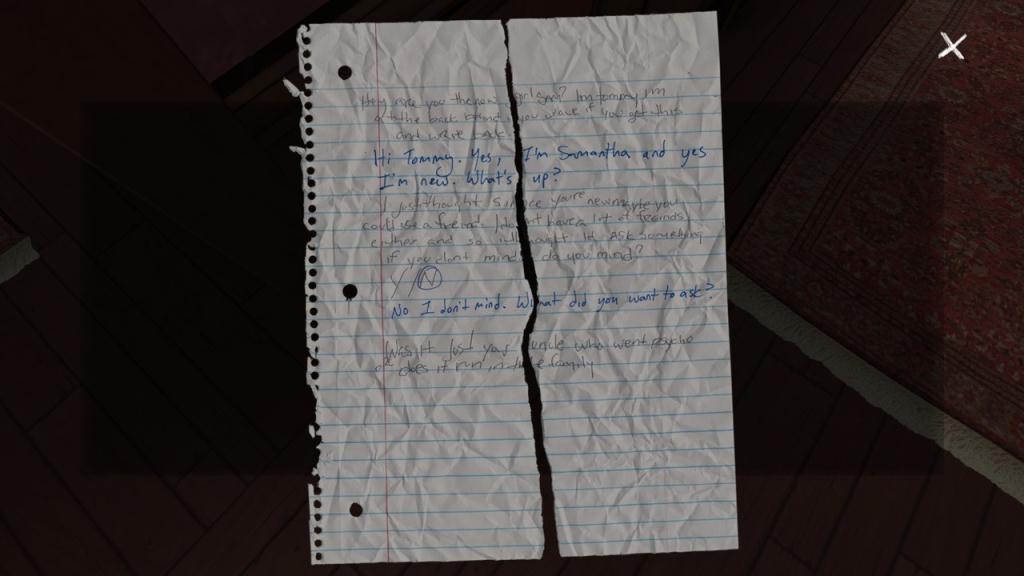 Hey are you the new girl Sam? Im tommy im
at the back behind you wave if you get this
and write back
Hi Tommy. Yes, I'm Samantha and yes
I'm new. What's up?
I just thought since youre new maybe you
could use a friend I dont have a lot of freinds
either and so i thought Id Ask something
if you dont mind do you mind?
Y/N
No I don't mind. What did you want to ask?
Was it just your uncle who went psycho
or does it run in the family